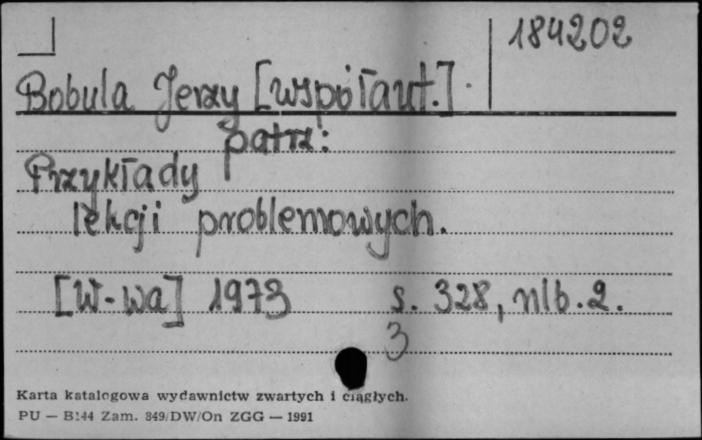 184202
Bobula Jerzy [współaut.]
patrz:
Przykłady
lekcji problemowych.
[W-wa] 1973 s. 328, nlb. 2.
3
Karta katalogowa wydawnictw zwartych i ciągłych.
PU — B144 Zam. 849/DW/On ZGG — 1991